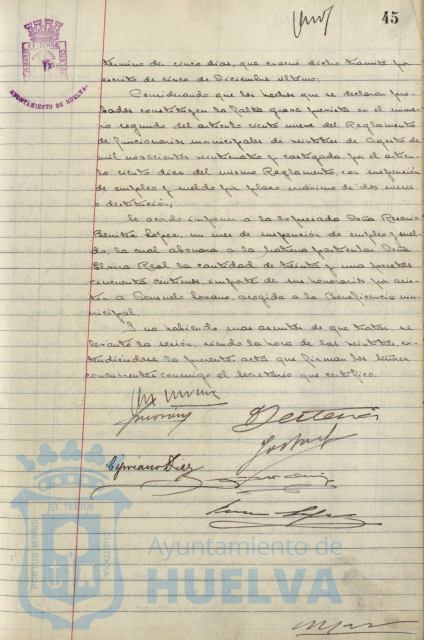 45
término de cinco días, que evacuó dicho trámite por
escrito de cinco de Diciembre último;
Considerando que los hechos que se declaran pro-
bados constituyen la falta grave prevista en el núme-
ro segundo del artículo ciento nueve del Reglamento
de funcionarios municipales de veintitres de Agosto de
mil novecientos veinticuatro y castigada por el artícu-
lo ciento diez del mismo Reglamento, con suspensión
de empleo y sueldo por plazo máximo de dos meses
o destitución;
Se acordó imponer a la expresada Doña Rosario
Benítez López, un mes de suspensión de empleo y suel-
do, la cual abonará a la matrona particular Doña
Elvira Real la cantidad de treinta y una pesetas
cincuenta céntimos, importe de sus honorarios por asis-
tir a Consuelo Lozano, acogida a la Beneficencia mu-
nicipal.
Y no habiendo mas asuntos de que tratar, se
levantó la sesión, siendo la hora de las veintitres, ex-
tendiéndose la presente acta que firman los señores
concurrentes conmigo el Secretario que certifico.
Cipriano Diez
AYUNTAMIENTO DE HUELVA
PORTUS MARIS
ET TERRÆ
CUSTODIA
Ayuntamiento de
HUELVA